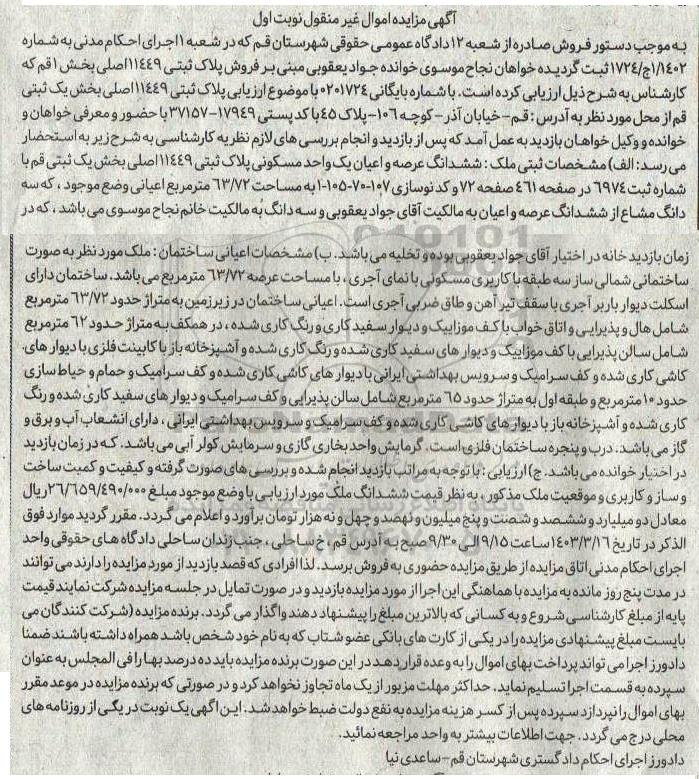 آگهی مزایده اموال غیر منقول نوبت اول
به موجب دستور فروش صادره از شعبه ۱۲ دادگاه عمومی حقوقی شهرستان قم که در شعبه ۱ اجرای احکام مدنی به شماره
۱۴۰۲/ج۱/۱۷۲۴ ثبت گردیده خواهان نجاح موسوی خوانده جواد یعقوبی مبنی بر فروش پلاک ثبتی ۱۱۴۴۹ اصلی بخش ۱ قم که
کارشناس به شرح ذیل ارزیابی کرده است. با شماره بایگانی ۰۲۰۱۷۲۴ با موضوع ارزیابی پلاک ثبتی ۱۱۴۴۹ اصلی بخش یک ثبتی
قم از محل مورد نظر به آدرس: قم-خیابان آذر-کوچه ۱۰۶-پلاک ۴۵ با کد پستی ۱۷۹۴۹-۳۷۱۵۷ با حضور و معرفی خواهان و
خوانده و وکیل خواهان بازدید به عمل آمد که پس از بازدید و انجام بررسی های لازم نظریه کارشناسی به شرح زیر به استحضار
می رسد: الف) مشخصات ثبتی ملک: ششدانگ عرصه و اعیان یک واحد مسکونی پلاک ثبتی ۱۱۴۴۹ اصلی بخش یک ثبتی قم با
شماره ثبت ۶۹۷۴ در صفحه ۴۶۱ صفحه ۷۲ و کد نوسازی ۱۰۷-۷۰-۱۰۵-۱ به مساحت ۶۳/۷۲ مترمربع اعیانی وضع موجود، که سه
دانگ مشاع از ششدانگ عرصه و اعیان به مالکیت آقای جواد یعقوبی و سه دانگ به مالکیت خانم نجاح موسوی می باشد، که در
زمان بازدید خانه در اختیار آقای جواد یعقوبی بوده و تخلیه می باشد. ب) مشخصات اعیانی ساختمان: ملک مورد نظر به صورت
ساختمانی شمالی ساز سه طبقه با کاربری مسکونی با نمای آجری، با مساحت عرصه ۶۳/۷۲ مترمربع می باشد. ساختمان دارای
اسکلت دیوار باربر آجری با سقف تیرآهن و طاق ضربی آجری است. اعیانی ساختمان در زیرزمین به متراژ حدود ۶۳/۷۲ مترمربع
شامل هال و پذیرایی و اتاق خواب با کف موزاییک و دیوار سفید کاری و رنگ کاری شده، در همکف به متراژ حدود ۶۲ مترمربع
شامل سالن پذیرایی با کف موزاییک و دیوار های سفید کاری شده و رنگ کاری شده و آشپزخانه باز با کابینت فلزی با دیوار های
کاشی کاری شده و کف سرامیک و سرویس بهداشتی ایرانی با دیوار های کاشی کاری شده و کف سرامیک و حمام و حیاط سازی
حدود ۱۰ مترمربع و طبقه اول به متراژ حدود ۶۵ مترمربع شامل سالن پذیرایی و کف سرامیک و دیوار های سفید کاری شده و رنگ
کاری شده و آشپزخانه باز با دیوار های کاشی کاری شده و کف سرامیک و سرویس بهداشتی ایرانی، دارای انشعاب آب و برق و
گاز می باشد. درب و پنجره ساختمان فلزی است. گرمایش واحد بخاری گازی و سرمایش کولر آبی می باشد. که در زمان بازدید
در اختیار خوانده می باشد. ج) ارزیابی: با توجه به مراتب بازدید انجام شده و بررسی های صورت گرفته و کیفیت و کمیت ساخت
و ساز و کاربری و موقعیت ملک مذکور، به نظر قیمت ششدانگ ملک مورد ارزیابی با وضع موجود مبلغ ۲۶/۶۵۹/۴۹۰/۰۰۰ ریال
معادل دو میلیارد و ششصد و شصت و پنج میلیون و نهصد و چهل و نه هزار تومان برآورد و اعلام می گردد. مقرر گردید موارد فوق
الذکر در تاریخ ۱۴۰۳/۳/۱۶ ساعت ۹/۱۵ الی ۹/۳۰ صبح به آدرس قم، خ ساحلی، جنب زندان ساحلی دادگاه های حقوقی واحد
اجرای احکام مدنی اتاق مزایده از طریق مزایده حضوری به فروش برسد. لذا افرادی که قصد بازدید از مورد مزایده را دارند می توانند
در مدت پنج روز مانده به مزایده با هماهنگی این اجرا از مورد مزایده بازدید و در صورت تمایل در جلسه مزایده شرکت نمایند قیمت
پایه از مبلغ کارشناسی شروع و به کسانی که بالاترین مبلغ را پیشنهاد دهند واگذار می گردد. برنده مزایده (شرکت کنندگان می
بایست مبلغ پیشنهادی مزایده را در یکی از کارت های بانکی عضو شتاب که به نام خود شخص باشد همراه داشته باشند ضمنا
دادورز اجرا می تواند پرداخت بهای اموال را به وعده قرار دهد در این صورت برنده مزایده باید ده درصد بها را فی المجلس به عنوان
سپرده به قسمت اجرا تسلیم نماید. حداکثر مهلت مزبور از یک ماه تجاوز نخواهد کرد و در صورتی که برنده مزایده در موعد مقرر
بهای اموال را نپردازد سپرده پس از کسر هزینه مزایده به نفع دولت ضبط خواهد شد. این آگهی یک نوبت در یکی از روزنامه های
محلی درج می گردد. جهت اطلاعات بیشتر به واحد مراجعه نمائید.
دادورز اجرای احکام دادگستری شهرستان قم-ساعدی نیا